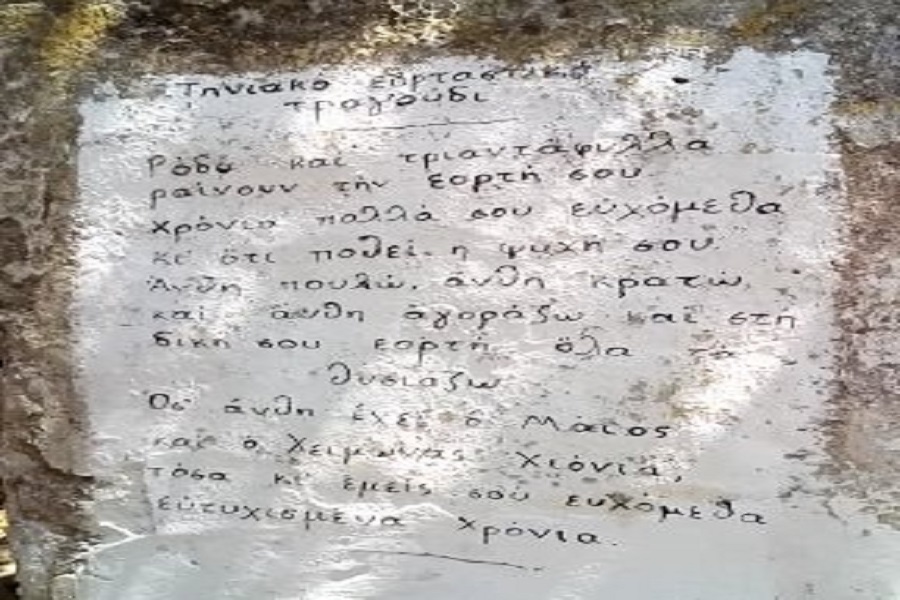 Τηνιακό εορταστικό
τραγούδι
Ρόδα και τριαντάφυλλα
ραίνουν τήν εορτή σου
χρόνια πολλά σου εὐχόμεθα
κι' ότι ποθεί η ψυχή σου.
Άνθη πουλώ, άνθη κρατώ,
καί άνθη άγοράζω καί στή
δική σου εορτή όλα τά
θυσιάζω
Οσ' άνθη έχει ό Μάιος
καί ό Χειμώνας Χιόνια,
τόσα κι' εμείς σού ευχόμεθα
εύτυχισμένα χρόνια.